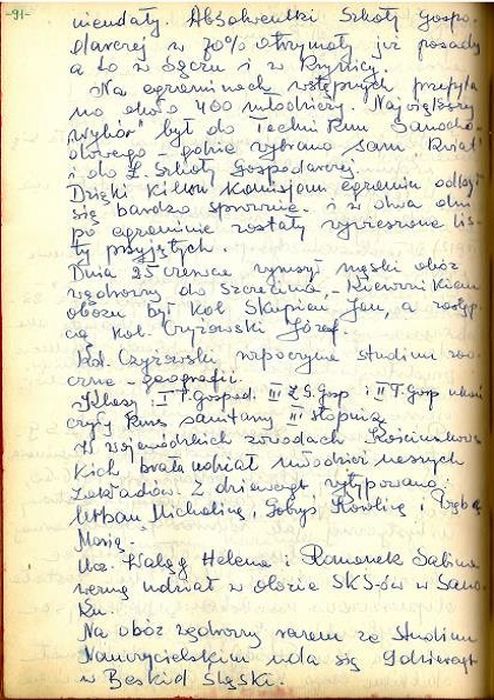 -91-
nieudały. Absolwentki Szkoły Gospo-
darczej w 70% otrzymały już posady
a to w Sączu i w Krynicy.
Na egzaminach wstępnych przepyta
no około 400 młodzieży. Największy
"wybór" był do Technikum Samocho-
dowego – gdzie wybrano sam "kwiat"
i do Z. Szkoły Gospodarczej.
Dzięki kilku komisjom egzamin odbył
się bardzo sprawnie. i w dwa dni
po egzaminie zostały wywieszone lis-
ty przyjętych.
Dnia 25 czerwca wyruszył męski obóz
wędrowny do Szczecina, – Kierownikiem
obozu był Kol Skupień Jan, a zastęp
cą kol. Czyżowski Józef.
Kol. Czyżowski rozpoczyna studium zao-
czne – geografii.
Klasy I T. Gospod. III Z S. Gosp i II T. Gosp ukoń
czyły kurs sanitarny III stopnia
W wojewódzkich zawodach Kościuszkows
kich, brała udział młodzież naszych
Zakładów. Z dziewcząt wytypowano:
Urban Michalinę, Gobyś Karolinę i Trębę
Marię.
Ucz. Waląg Helena i Romanek Sabina
wezmą udział w obozie SKS-ów w Sano
ku.
Na obóz wędrowny razem ze Studium
Nauczycielskim uda się 6 dziewcząt
w Beskid Śląski.